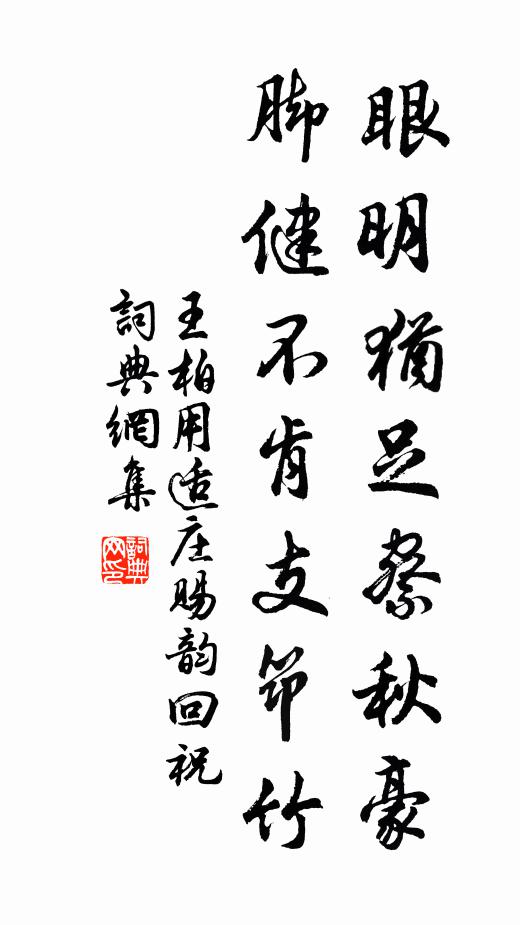 眼明猶足察秋豪
脚健不肯支笻竹
王柏用适庄賜韵回祝
詞典網集
詞典
网印